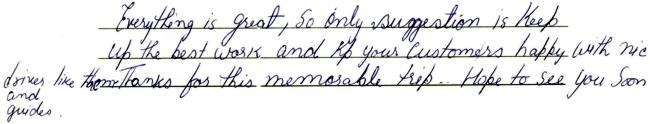 Everything is great, So only suggestion is Keep
up the best work and Kp your Customers happy with nic
drives like them Thanks for this memorable trip.. Hope to see you Soon
and
guides.